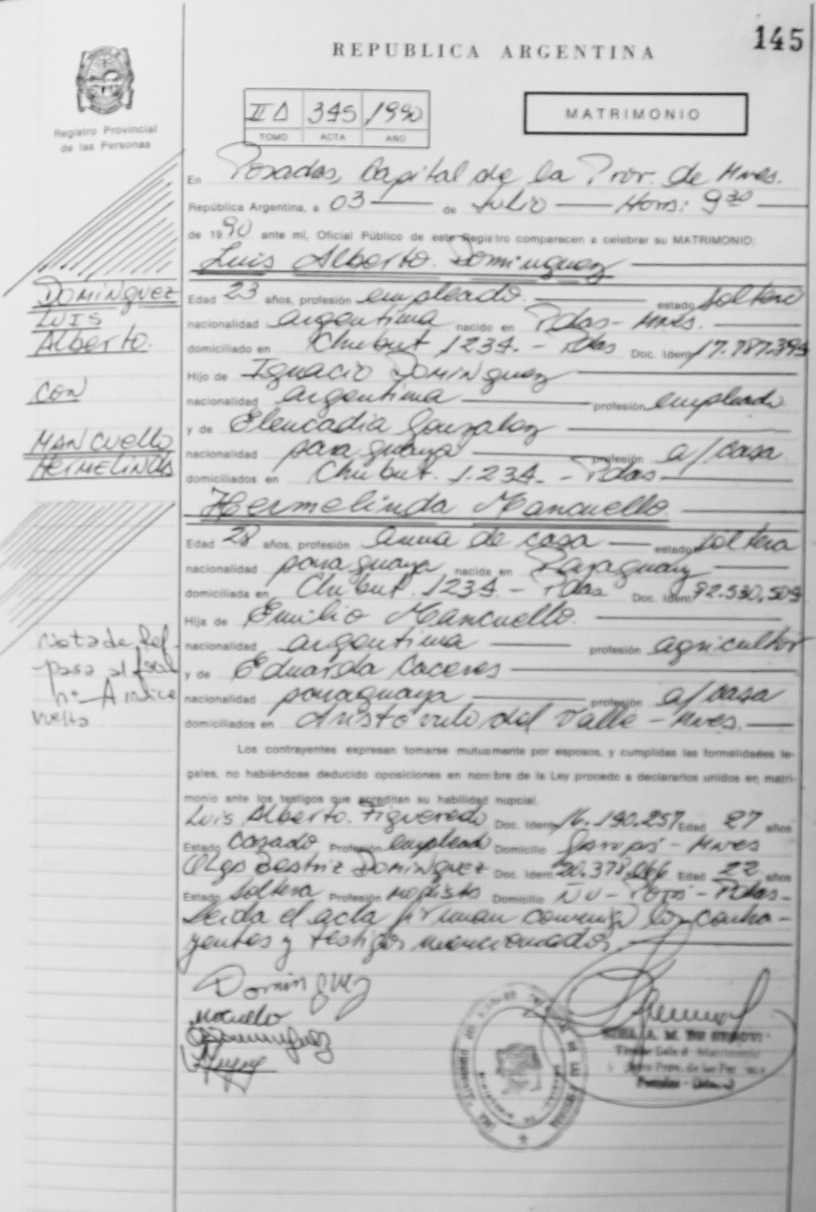 145
REPUBLICA ARGENTINA
Registro Provincial
de las Personas
II D 345 1990
TOMO ACTA AÑO
MATRIMONIO
En Posadas, Capital de la Prov. de Mnes.
República Argentina, a 03 de Julio Hors: 9 30
de 1990 ante mí, Oficial Público de este Registro comparecen a celebrar su MATRIMONIO:
Luis Alberto Dominguez
Edad 23 años, profesión empleado. estado soltero
nacionalidad argentina nacido en Pdas - Mnes.
domiciliado en Chubut 1234. - Pdas Doc. Ident 17.787.394
Hijo de Ignacio Dominguez
nacionalidad argentina profesión empleado
y de Gonzalez
nacionalidad paraguaya profesión a/casa
domiciliados en Chubut 1.234. - Pdas
Hermelinda Mancuello
Edad 28 años, profesión ama de casa estado soltera
nacionalidad paraguaya nacida en Paraguay
domiciliada en Chubut 1234 - Pdas Doc. Ident 92.530.504
Hija de Emilio Mancuello.
nacionalidad argentina profesión agricultor
y de Eduarda Caceres
nacionalidad paraguaya profesión a/casa
domiciliados en Aristóbulo del Valle - Mnes.
Los contrayentes expresan tomarse mutuamente por esposos, y cumplidas las formalidades le-
gales, no habiéndose deducido oposiciones en nombre de la Ley procedo a declararlos unidos en matri-
monio ante los testigos que acreditan su habilidad nupcial.
Luis Alberto Figueredo Doc. Ident 16.190.257 Edad 27 años
Estado Casado Profesión empleado Domicilio Garupá - Mnes
Olga Beatriz Dominguez Doc. Ident 20.378.066 Edad 22 años
Estado Soltera Profesión Domicilio - Pdas -
Leida el acta firman conmigo los contra-
yentes y testigos mencionados.
DOMINGUEZ
LUIS
Alberto.
CON
MANCUELLO
HERMELINDA
Nota de Ref
pasa al
vuelta
Dominguez